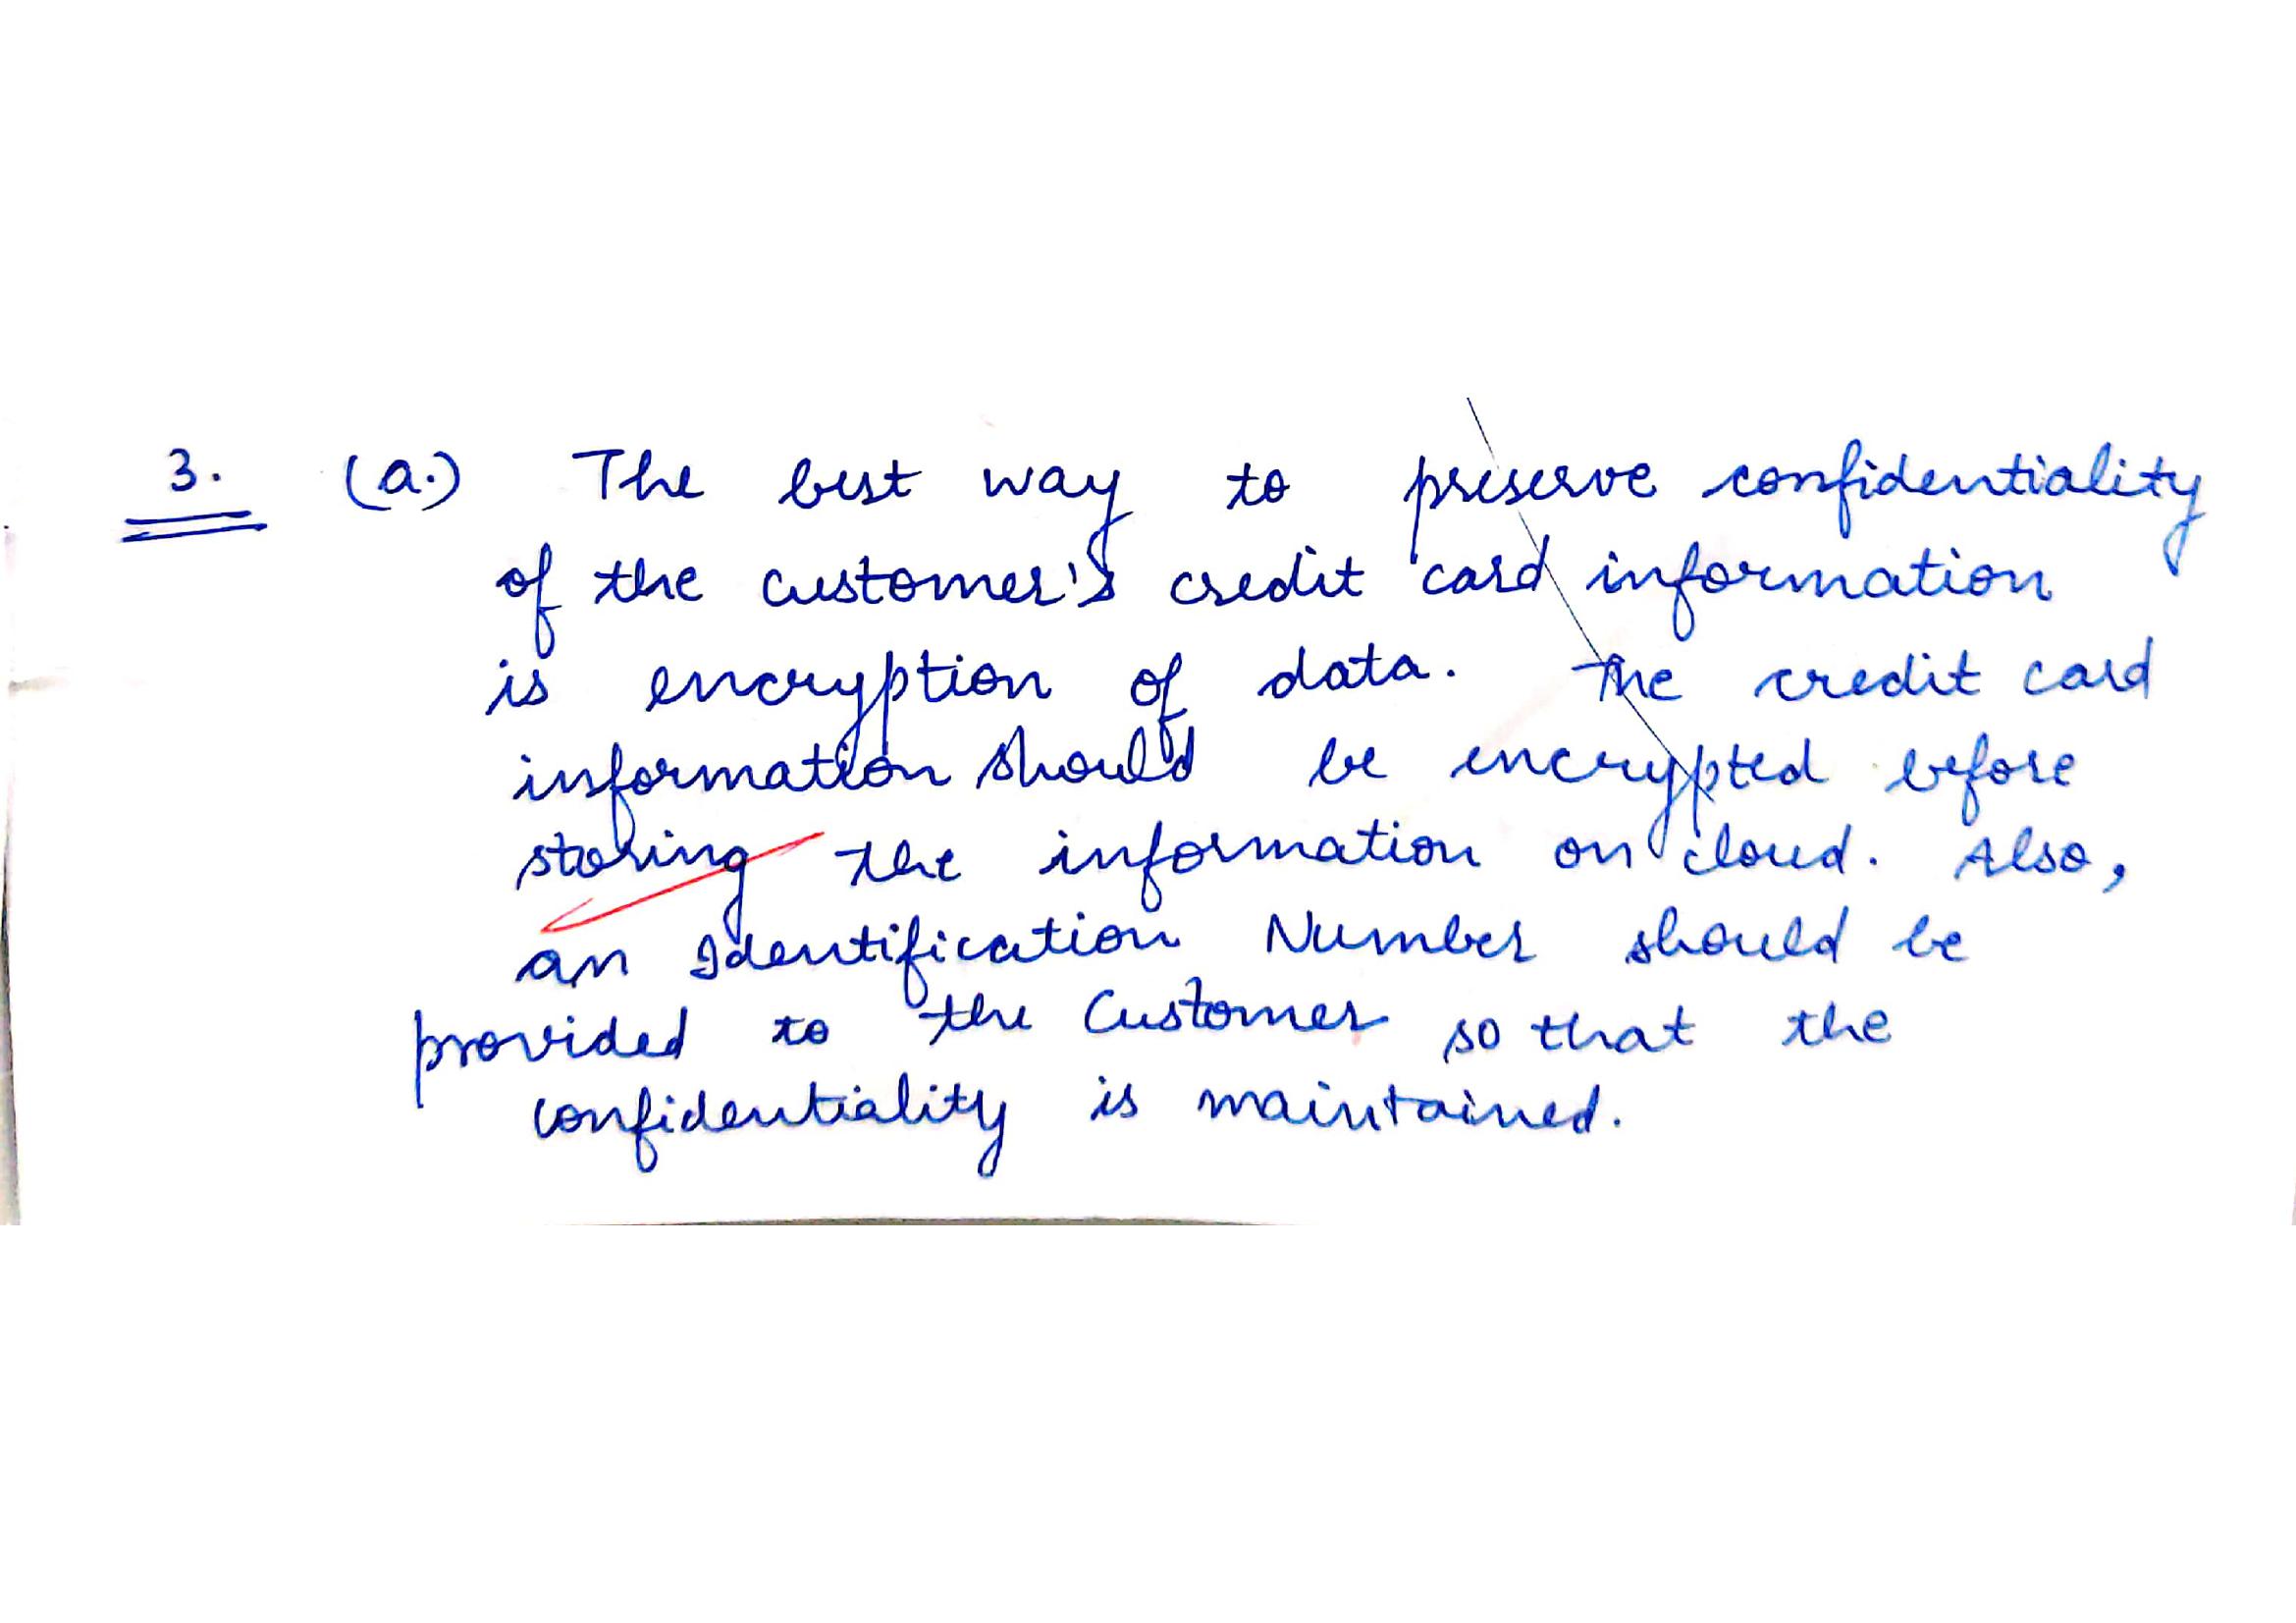 3. (a.) The best way to preserve confidentiality
of the customer's credit card information
is encryption of data. The credit card
information should be encrypted before
storing the information on cloud. Also,
an Identification Number should be
provided to the Customer so that the
confidentiality is maintained.